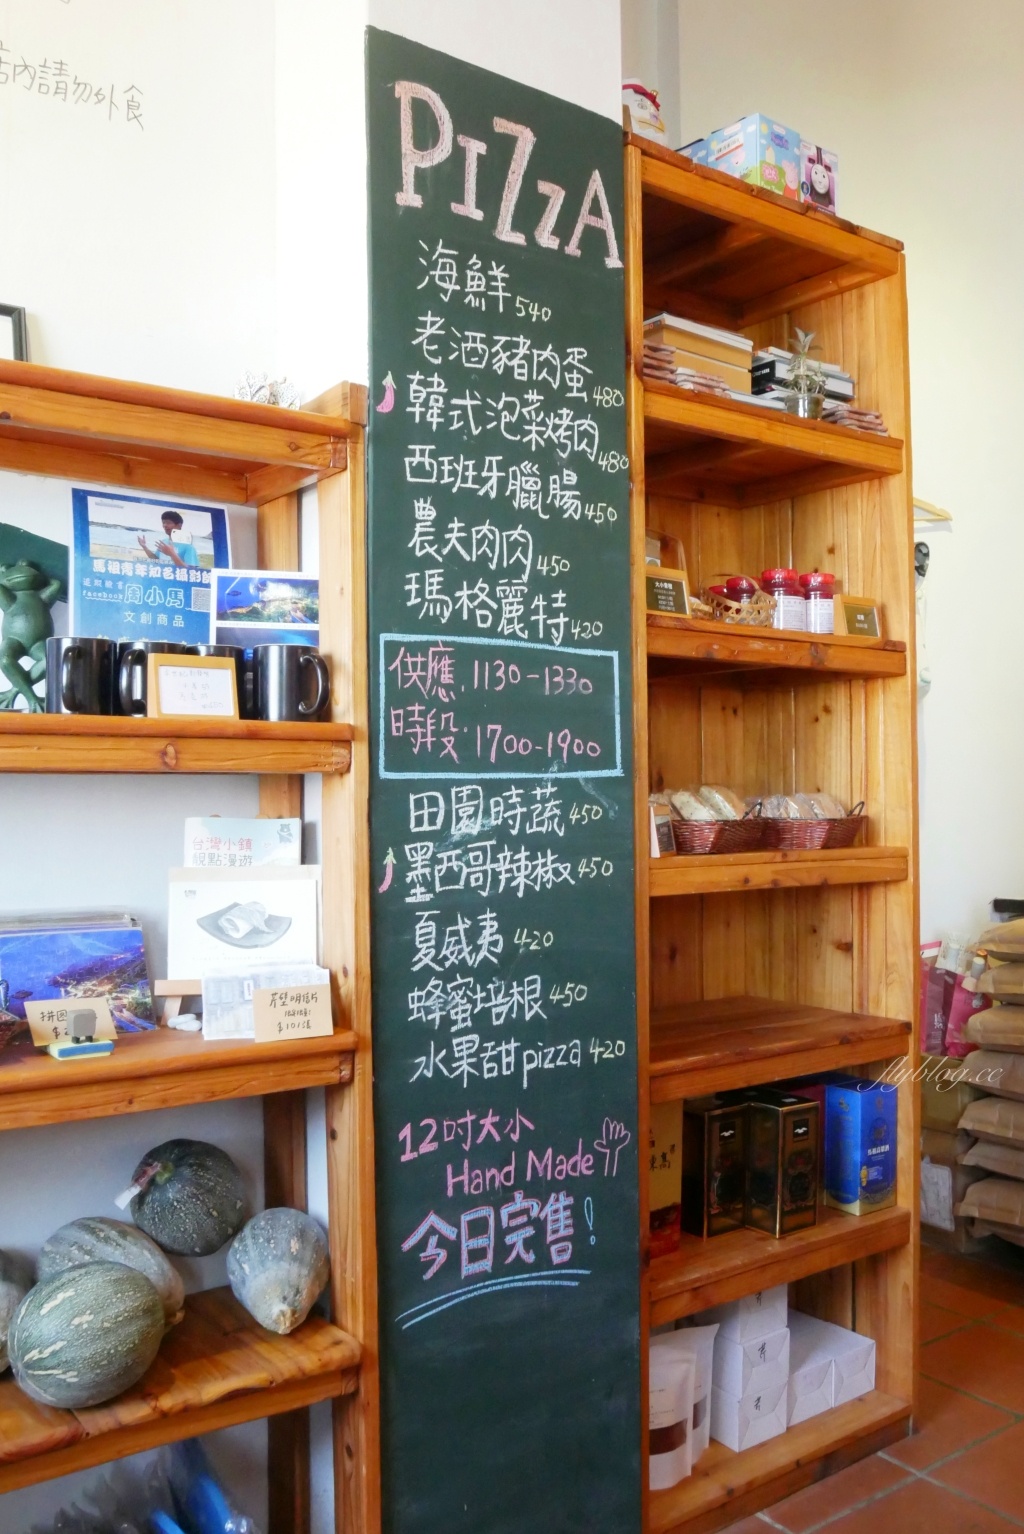 店內請勿外食
PIZZA
海鮮 540
老酒豬肉蛋 480
韓式泡菜烤肉 480
西班牙臘腸 450
農夫肉肉 450
瑪格麗特 420
供應 1130-1330
時段 1700-1900
田園時蔬 450
墨西哥辣椒 450
夏威夷 420
蜂蜜培根 450
水果甜pizza 420
12吋大小
Hand Made
今日完售!
馬祖青年知名攝影師
facebook 周小馬
文創商品
台灣小鎮
視點漫遊
芹壁明信片
flyblog.cc